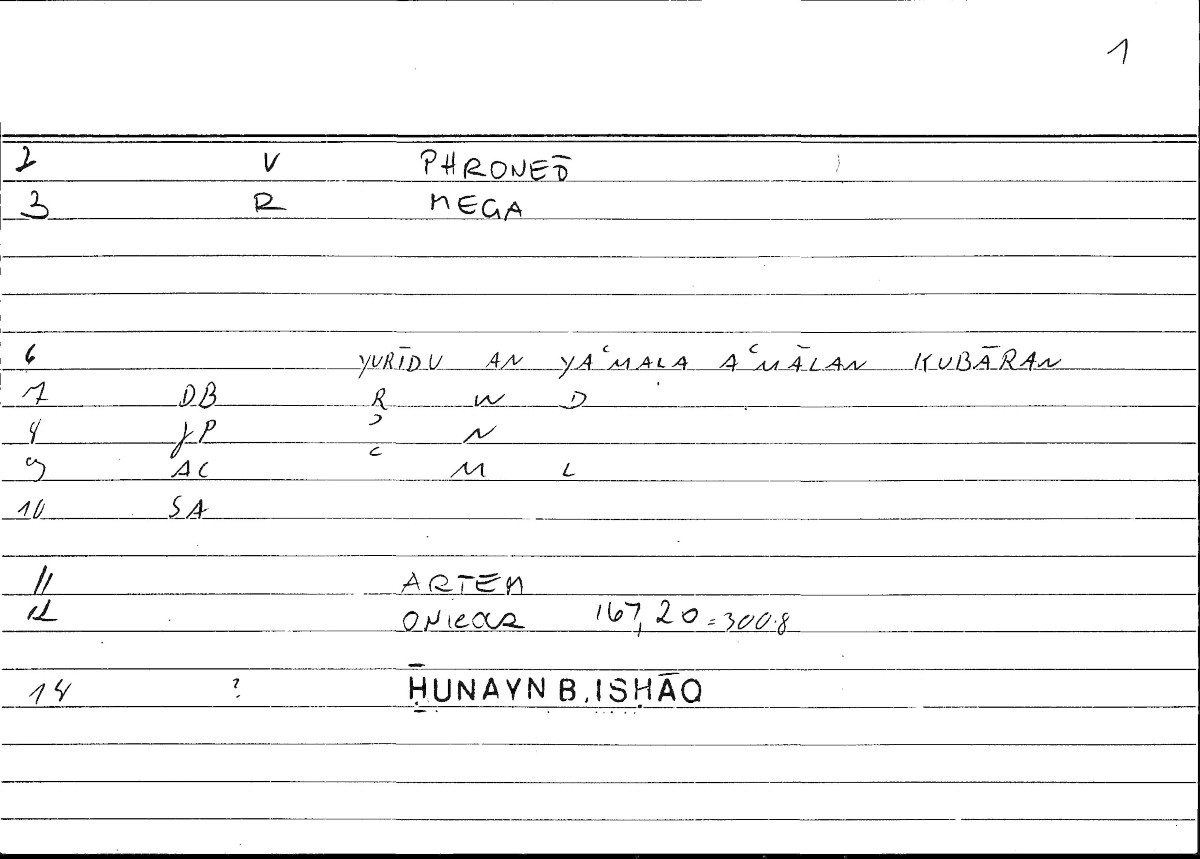 1
2 V PHRONEŌ
3 R MEGA
6 YURĪDU AN YAʿMALA AʿMĀLAN KUBĀRAN
7 DB R W D
8 JP ʾ N
9 AC ʿ M L
10 SA
11 ARTEM
12 ONIROCR 167,20 = 300.8
14 ? ḤUNAYN B. ISḤĀQ